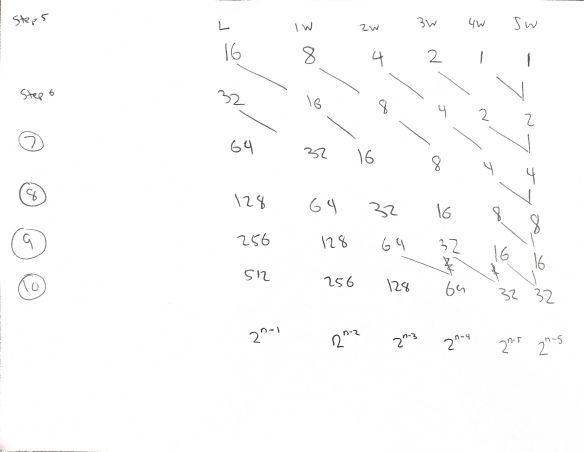 Step 5 L 1W 2W 3W 4W 5W
16 8 4 2 1 1
Step 6 32 16 8 4 2 2
7 64 32 16 8 4 4
8 128 64 32 16 8 8
9 256 128 64 32 16 16
10 512 256 128 64 32 32
2ⁿ⁻¹ 2ⁿ⁻² 2ⁿ⁻³ 2ⁿ⁻⁴ 2ⁿ⁻⁵ 2ⁿ⁻⁵